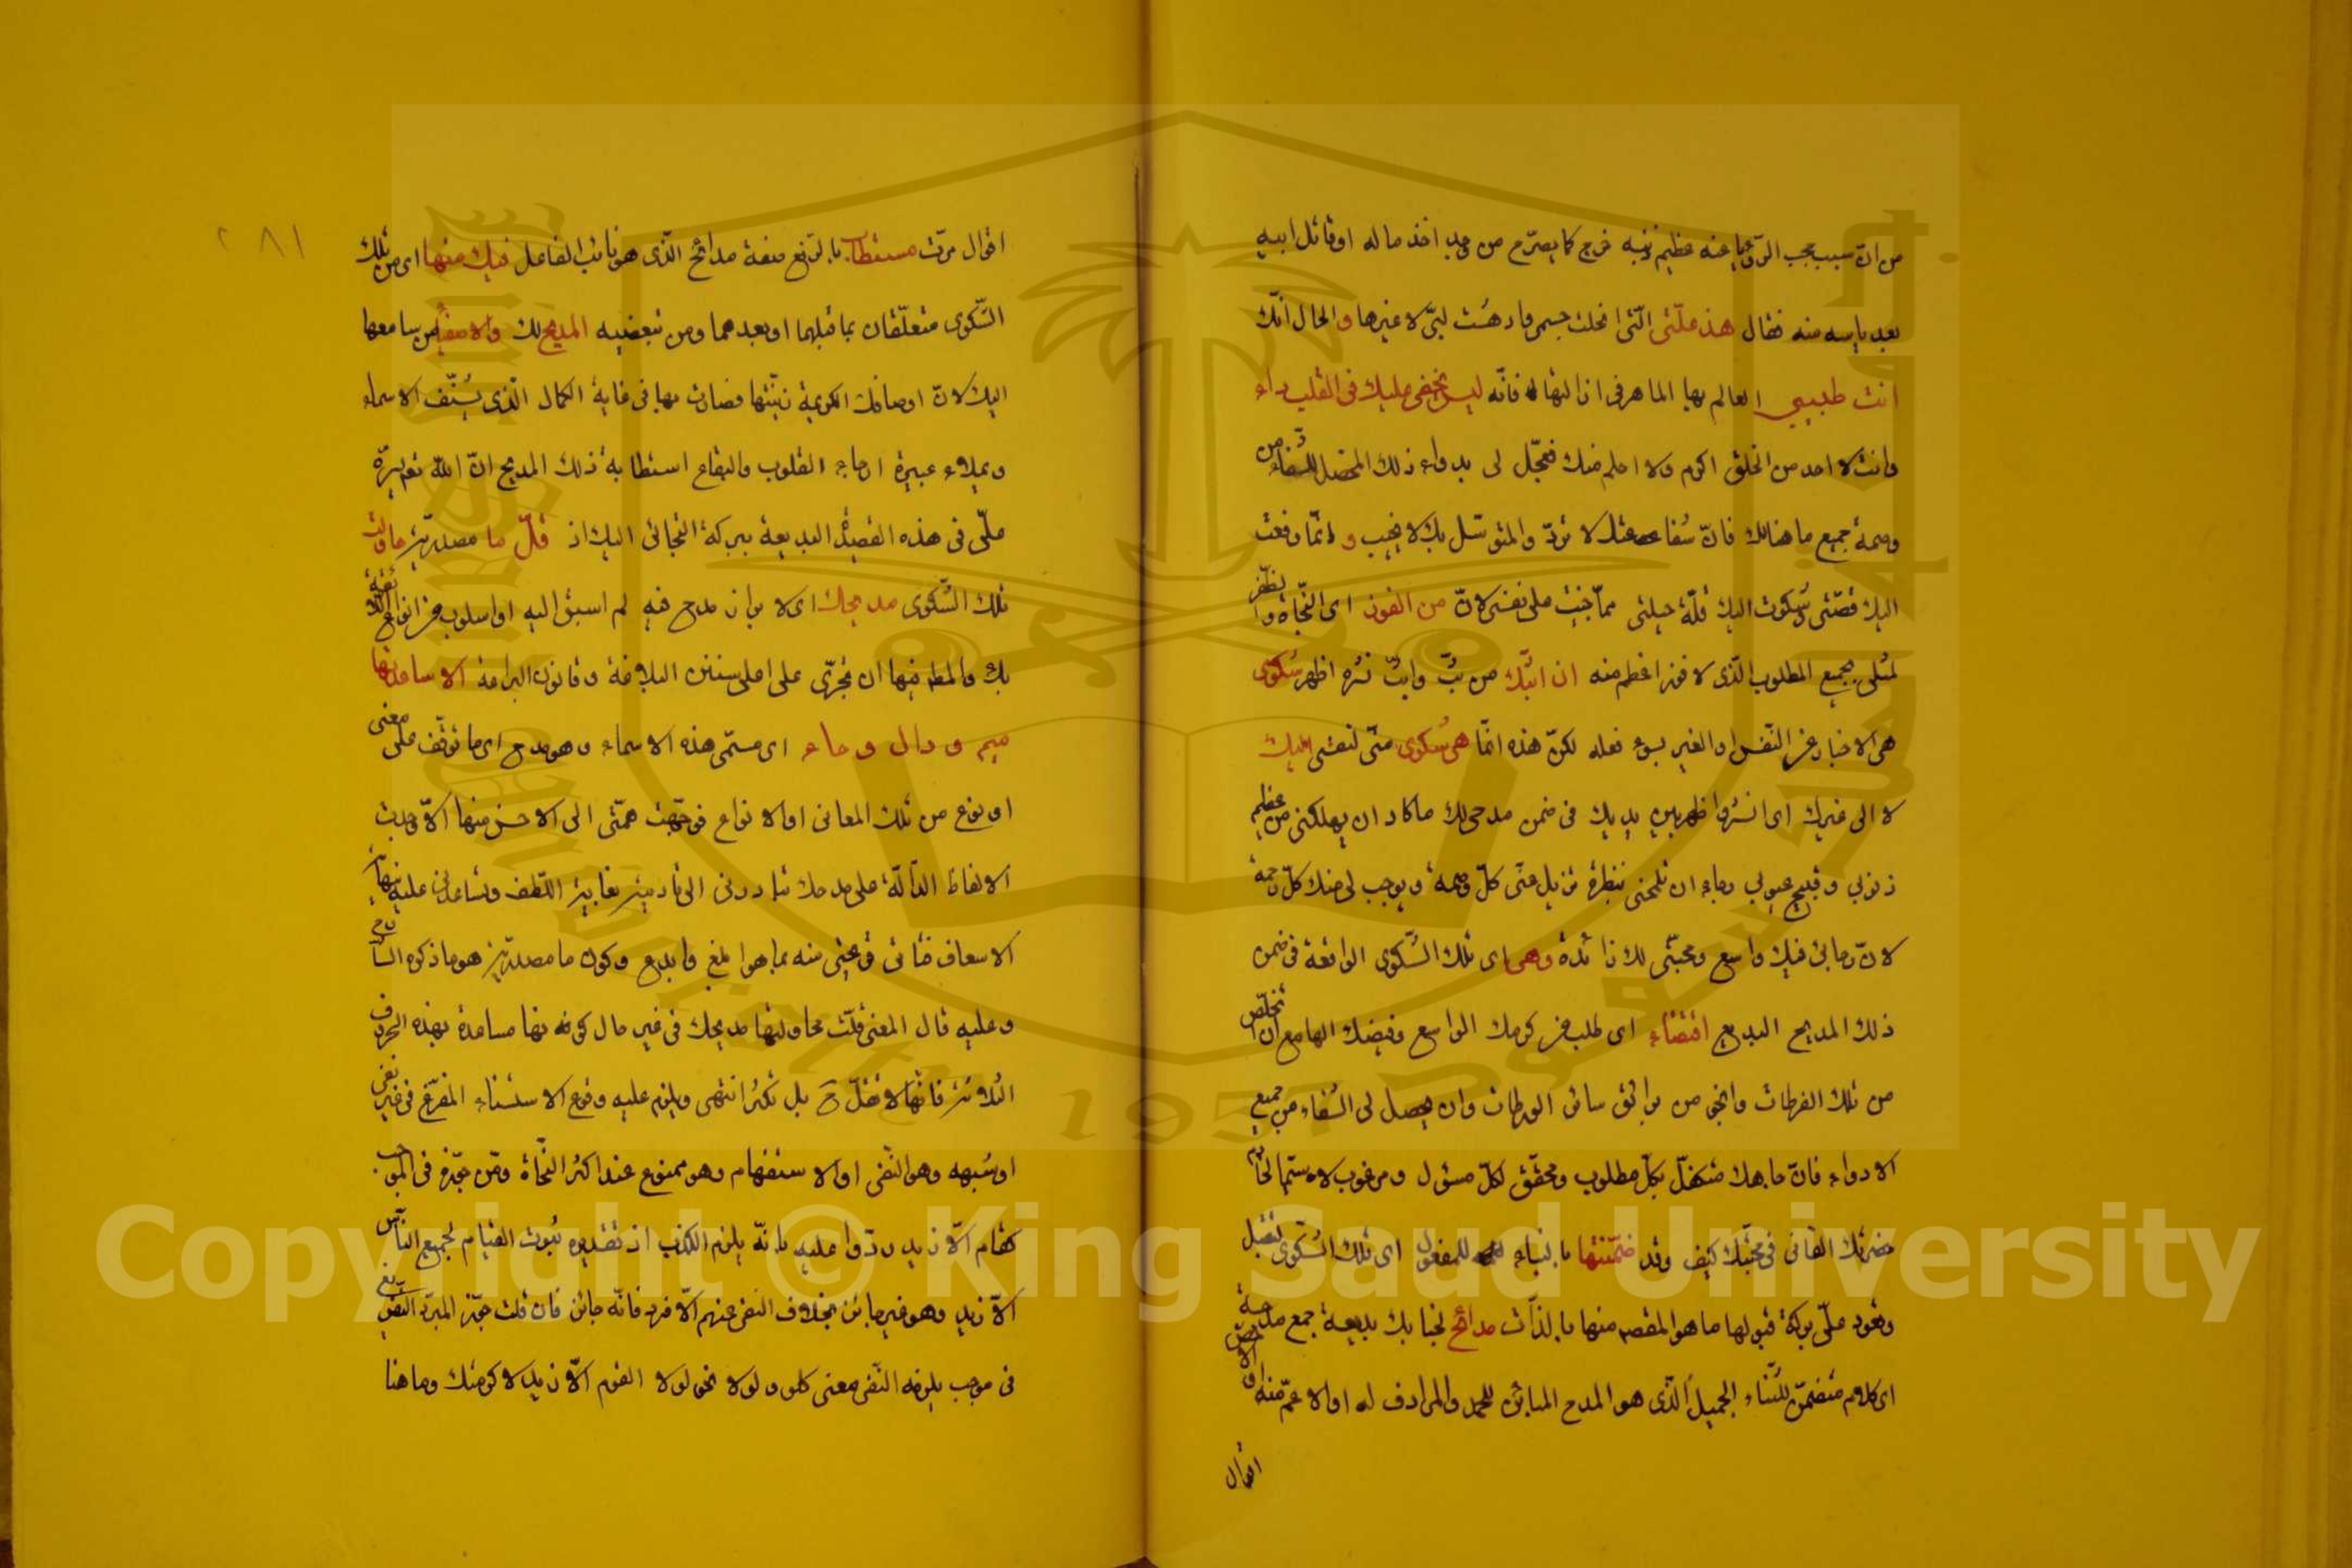 من ان سبب حجب الرؤيا عنه عظيم ذنبه خرج كما يصرح من وجد اخذ ماله او قاتل ابيه
بعد ياسه منه فقال هذه علتى التى انحلت جسمى وادهشت لبى لا غيرها والحال انك
انت طبيبى العالم بها الماهر فى ازالتها فانه ليس يخفى عليك فى القلب داء
وانت لا احد من الخلق اكرم ولا احلم منك فعجل لى بدواء ذلك المحصل للشفاء من
وصمة جميع ما هنالك فان شفاعتك لا ترد والمتوسل بك لا يخيب و انما رفعت
اليك قصتى وشكوت اليك قلة حيلتى مما جنيت على نفسى لان من الفوز اى النجاة والظفر
لمثلى بجميع المطلوب الذى لا فوز اعظم منه ان ابثك من بث وابث نشر اظهر شكوى
هى الاخبار عن النفس او الغير بسوء فعله لكن هذه انما هى شكوى منى لنفسى اليك
لا الى غيرك اى انشر واظهر بين يديك فى ضمن مدحى لك ما كاد ان يهلكنى من عظيم
ذنوبى وقبيح عيوبى رجاء ان تلمحنى بنظرة تزيل عنى كل وصمة ويوجب لى منك كل رحمة
لان رجائى فيك واسع ومحبتى لك زائدة وهى اى تلك الشكوى الواقعة فى ضمن
ذلك المديح البديع اقتضاء اى طلب من كرمك الواسع وفيضك الهامع ان اتخلص
من تلك الفرطات وانجو من بوائق سائر الورطات وان يحصل لى الشفاء من جميع
الادواء فان جاهك متكفل بكل مطلوب ومحقق لكل مسئول ومرغوب لا سيما لخادم
حضرتك الفانى فى محبتك كيف وقد ضمنتها بالبناء للمفعول اى تلك الشكوى لتقبل
وتعود على بركة قبولها ما هو المقصد منها بالذات مدائح لجنابك بديعة جمع مدحة
اى كلام متضمن للثناء الجميل الذى هو المدح المباين للحمد والمرادف له او الاعم منه او الاخص
اقوال
٢٨١
اقوال مرت مستطاب بالرفع صفة مدائح الذى هو نائب الفاعل فيك منها اى من تلك
الشكوى متعلقان بما قبلهما او بعدهما ومن تبعضيه المديح لك والاصغاء من سامعها
اليك لان اوصافك الكريمة زينتها فصارت بها فى غاية الكمال الذى يشنف الاسماع
ويملاء عبيره ارجاء القلوب والبقاع استطابة ذلك المديح ان الله تع يسره
على فى هذه القصيدة البديعة ببركة التجائى اليك اذ قل ما مصدرية حاولت
تلك الشكوى مديحك اى لا بوزن مدح فيه لم اسبق اليه او اسلوب من انواع اللائقة
بك والمطه فيها ان تجرى على اعلى سنن البلاغة وقانون البراعة الا ساعدتها
ميم و دال و حاء اى مسمى هذه الاسماء وهو مدح اى ما توقف على معنى
او نوع من تلك المعانى او الانواع فوجهت همتى الى الاحسن منها الا وجدت
الالفاظ الدالة على مدحك تبادرنى الى تاديته بغاية اللطف وتساعدنى عليه بنهاية
الاسعاف فتاتى وعينى منه بما هو ابلغ وابدع وكون ما مصدرية هو ما ذكره الشارح
وعليه قال المعنى قلت محاولتها مديحك فى غير حال كونها مساعدة بهذه الحروف
الثلاثة فانها لا تقل ح بل تكثر انتهى ويلزم عليه وقوع الاستثناء المفرغ فى غير نفى
او شبهه وهو النهى او الاستفهام وهو ممنوع عند اكثر النحاة ومن جوزه فى الموجب
كقام الا زيد ردوا عليه بانه يلزم الكذب اذ تقديره ثبوت القيام لجميع الناس
الا زيد وهو غير جائز بخلاف النفى عنهم الا فرد فانه جائز فان قلت جوز المبرد التفريغ
فى موجب يلزمه النفى معنى كلو ولولا نحو لولا القوم الا زيد لاكرمتك وما هنا